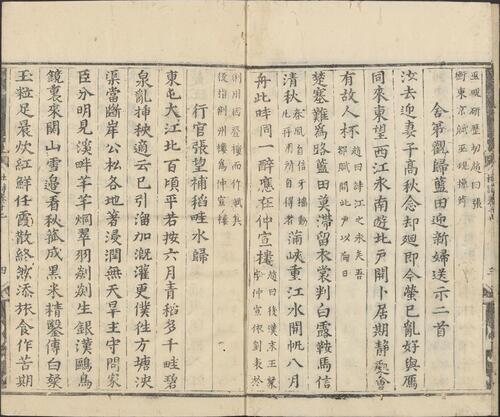 舍弟觀歸藍田迎新婦送示二首
汝去迎妻子高秋念却廻即今螢已亂好與鴈
同來東望西江永南遊北戶開卜居期靜處會
有故人杯
楚塞難爲路藍田莫滯留衣裳判白露鞍馬信
清秋
滿峽重江水開帆八月
舟此時同一醉應在仲宣樓
行官張望補稻畦水歸
東屯大江北百頃平若按六月青稻多千畦碧
泉亂挿秧適云已引溜加溉灌更僕往方塘決
渠當斷岸公私各地著浸潤無天旱主守問家
臣分明見溪畔芊芊烱翠羽剡剡生銀漢鷗鳥
鏡裏來關山雪邊看秋菰成黑米精鑿傳白粲
玉粒足晨炊紅鮮任霞散終然添旅食作苦期